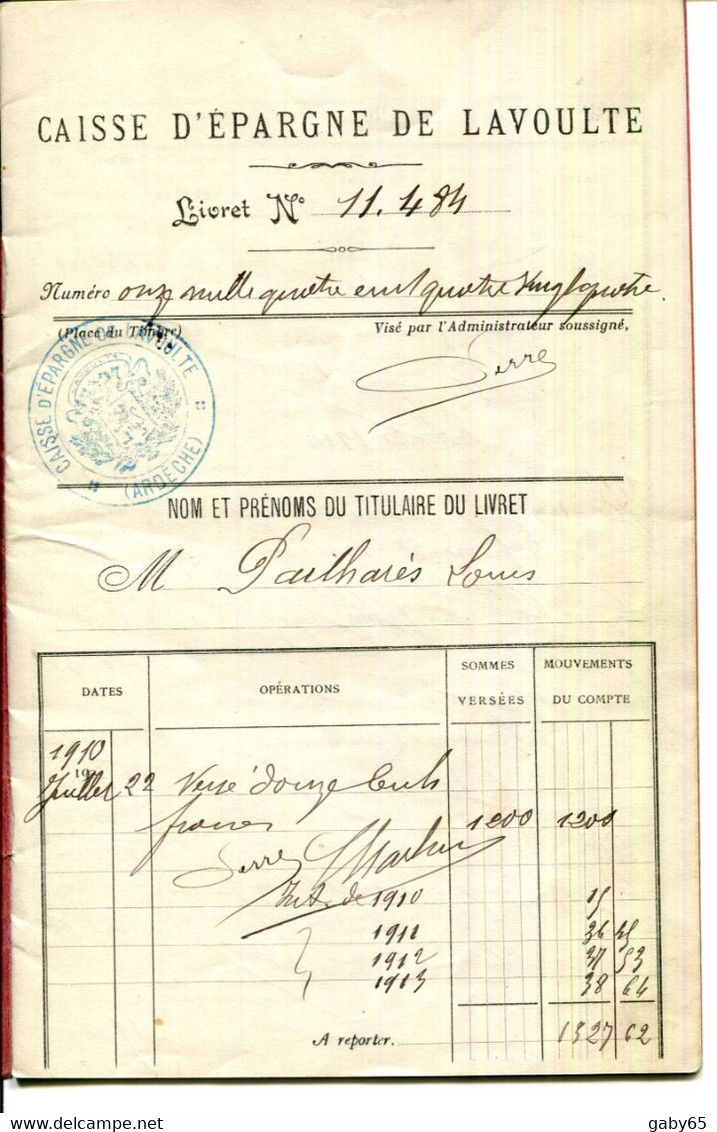 CAISSE D'ÉPARGNE DE LAVOULTE
Livret N° 11.484
Numéro onze mille quatre cent quatre vingt quatre.
(Place du Timbre) Visé par l'Administrateur soussigné,
CAISSE D'ÉPARGNE DE LAVOULTE
(ARDÈCHE)
Serre
NOM ET PRÉNOMS DU TITULAIRE DU LIVRET
M Pailharès Louis
DATES OPÉRATIONS SOMMES VERSÉES MOUVEMENTS DU COMPTE
1910
19
Juillet 22 Versé douze cents
francs 1200 1200
Serre
Int. de 1910 15
1911 36 45
1912 37 53
1913 38 64
A reporter. 1327 62
gaby65